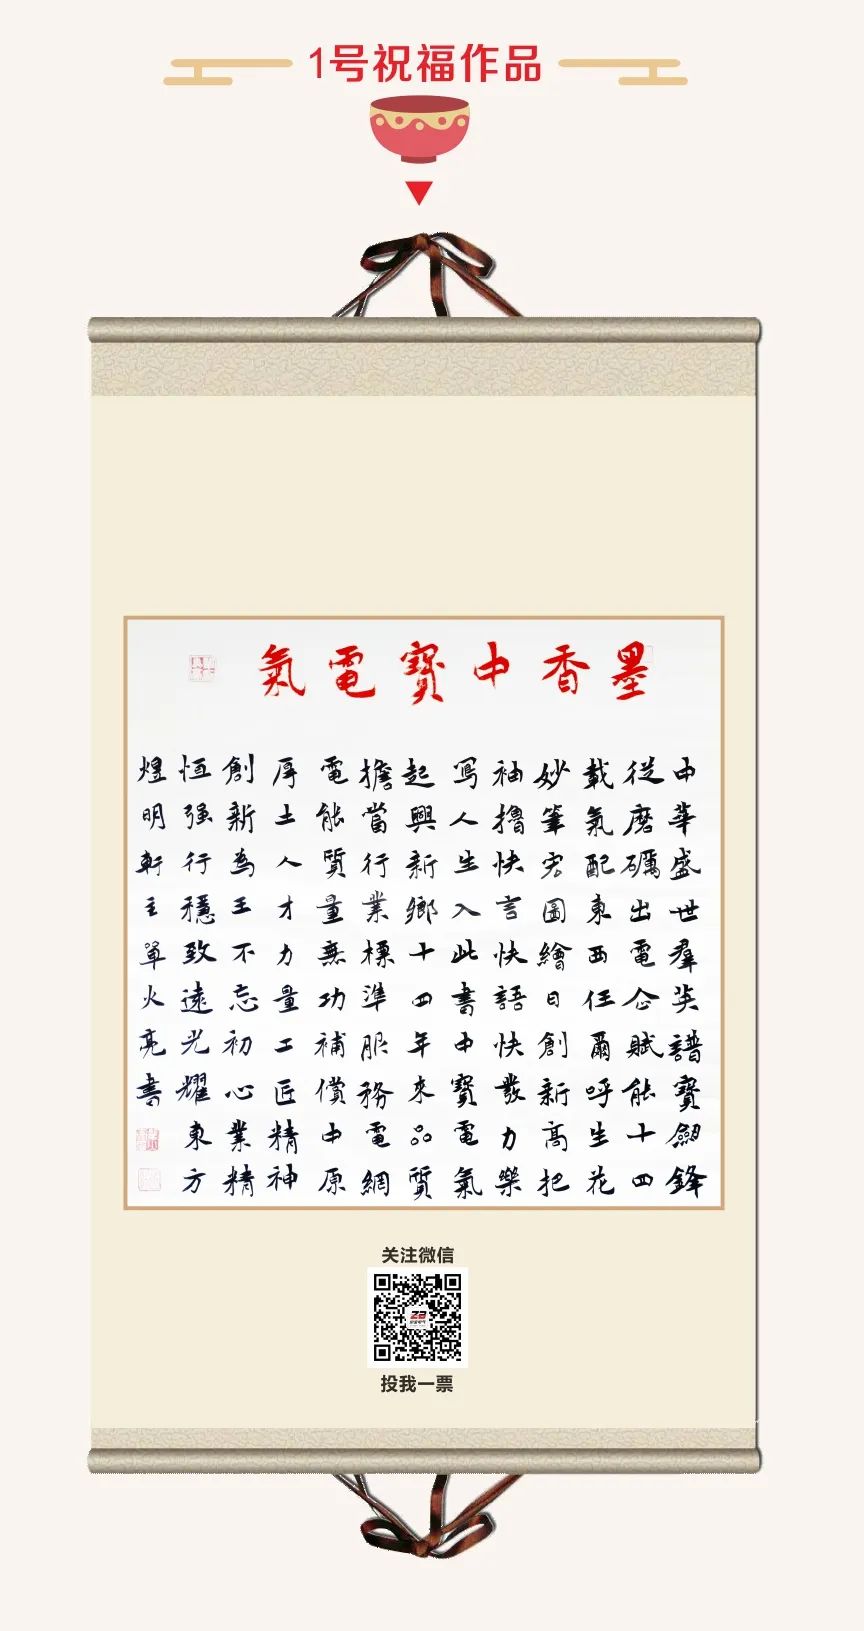 1号祝福作品
墨香中寶電氣
中華盛世羣英譜寶劍鋒
從磨礪出電企賦能十四
載氣配東西任爾呼生花
妙筆宏圖繪日創新高把
袖擼快言快語快發力樂
寫人生入此書中寶電氣
起興新鄉十四年來品質
擔當行業標準服務電網
電能質量無功補償中原
厚土人才力量工匠精神
創新為王不忘初心業精
恆强行穩致遠光耀東方
煜明軒主單火亮書
关注微信
投我一票